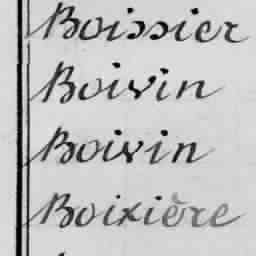 Boissier
Boivin
Boivin
Boixière